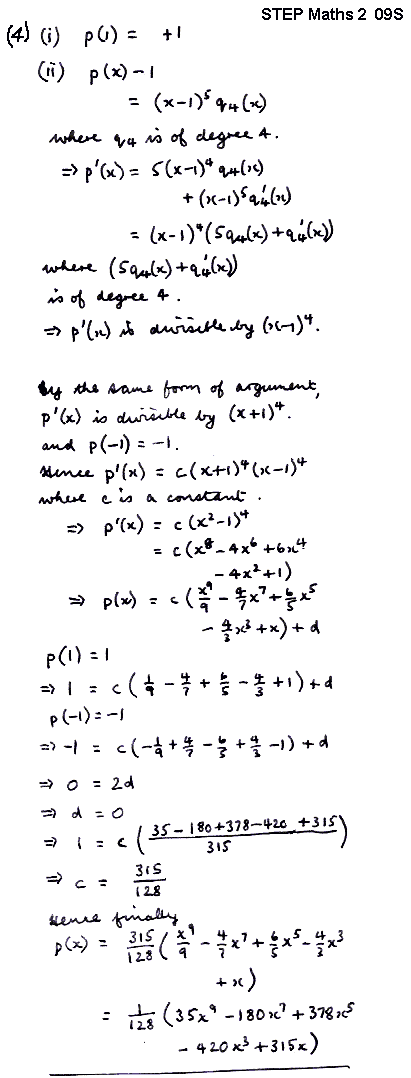 STEP Maths 2 09S
(4) (i) p(1) = +1
(ii) p(x) - 1
= (x-1)⁵ q₄(x)
where q₄ is of degree 4.
⇒ p'(x) = 5(x-1)⁴ q₄(x)
+ (x-1)⁵ q₄'(x)
= (x-1)⁴ (5q₄(x) + q₄'(x))
where (5q₄(x) + q₄'(x))
is of degree 4.
⇒ p'(x) is divisible by (x-1)⁴.
By the same form of argument,
p'(x) is divisible by (x+1)⁴.
and p(-1) = -1.
Hence p'(x) = c(x+1)⁴(x-1)⁴
where c is a constant.
⇒ p'(x) = c(x²-1)⁴
= c(x⁸ - 4x⁶ + 6x⁴
- 4x² + 1)
⇒ p(x) = c(x⁹/9 - 4/7 x⁷ + 6/5 x⁵
- 4/3 x³ + x) + d
p(1) = 1
⇒ 1 = c(1/9 - 4/7 + 6/5 - 4/3 + 1) + d
p(-1) = -1
⇒ -1 = c(-1/9 + 4/7 - 6/5 + 4/3 - 1) + d
⇒ 0 = 2d
⇒ d = 0
⇒ 1 = c((35 - 180 + 378 - 420 + 315)/315)
⇒ c = 315/128
Hence finally
p(x) = 315/128 (x⁹/9 - 4/7 x⁷ + 6/5 x⁵ - 4/3 x³
+ x)
= 1/128 (35x⁹ - 180x⁷ + 378x⁵
- 420x³ + 315x)